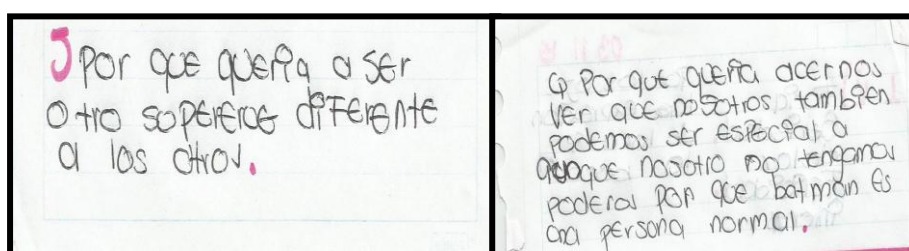 J Por que queria a ser
otro sopereroe diferente
a los otros.
G Por que queria acernos
ver que nosotros tambien
podemos ser especial a
que nosotro no tengamos
poderas por que batman es
ana persona normal.